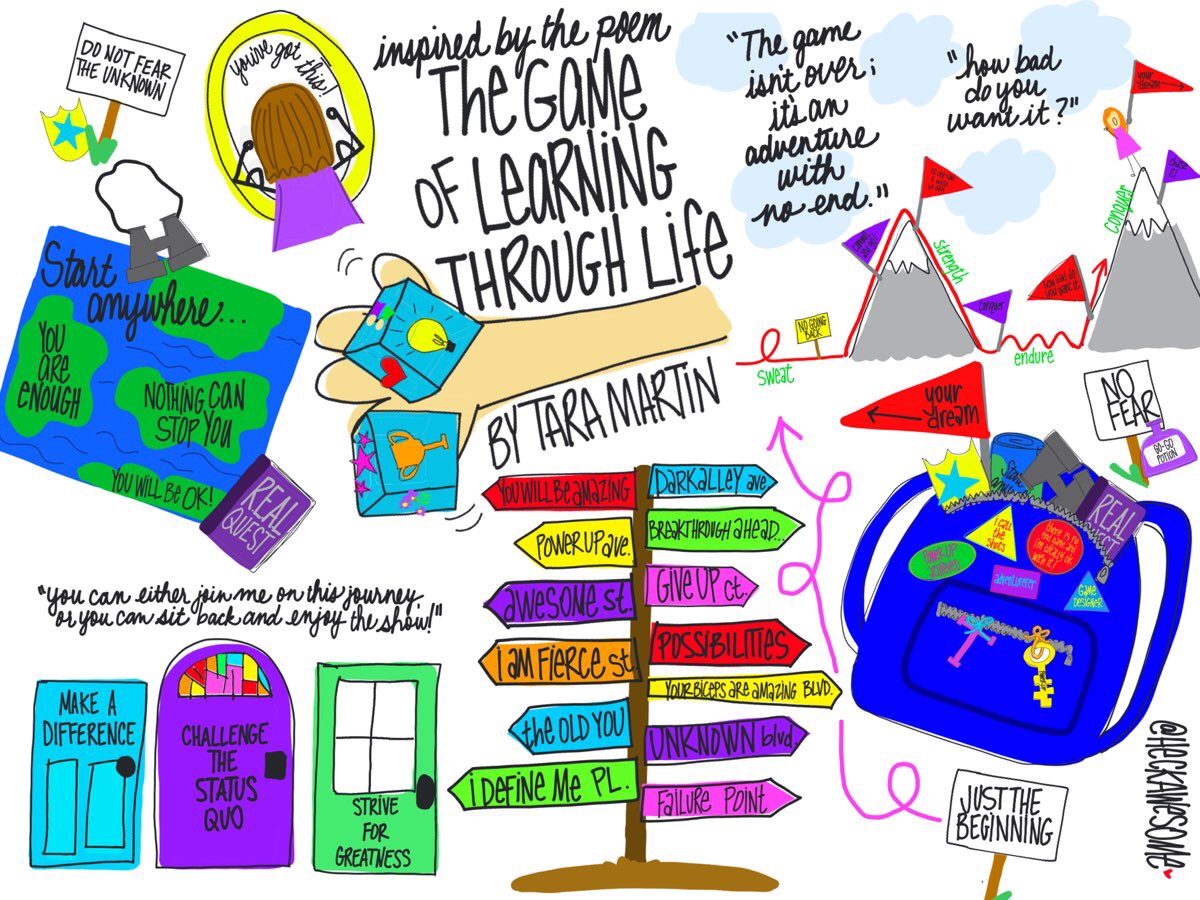 DO NOT FEAR
THE UNKNOWN
you've got this!
inspired by the poem
THE GAME
OF LEARNING
THROUGH LIFE
BY TARA MARTIN
"The game
isn't over;
it's an
adventure
with
no end."
"how bad
do you
want it?"
your
dream
Conquer
strength
NO GOING
BACK
sweat
conquer
how bad do
you want it?
endure
Start
anywhere...
YOU
ARE
ENOUGH
NOTHING CAN
STOP YOU
YOU WILL BE OK!
REAL
QUEST
"you can either join me on this journey
or you can sit back and enjoy the show!"
MAKE A
DIFFERENCE
CHALLENGE
THE
STATUS
QUO
STRIVE
FOR
GREATNESS
YOU WILL BE AMAZING
DARKALLEY ave.
POWER UP ave.
BREAKTHROUGH AHEAD...
AWESOME st.
GIVE UP ct.
I AM FIERCE st.
POSSIBILITIES
YOUR BICEPS ARE AMAZING BLVD.
the OLD YOU
UNKNOWN blvd.
I DEFINE ME PL.
FAILURE POINT
your
dream
NO
FEAR
GO-GO
POTION
Start
REAL
I CALL
the
shots
there is no
end game and
i'm totally ok
with it!
POWER UP
adventurer
GAME
DESIGNER
JUST THE
BEGINNING
@HeCKAWESOMe